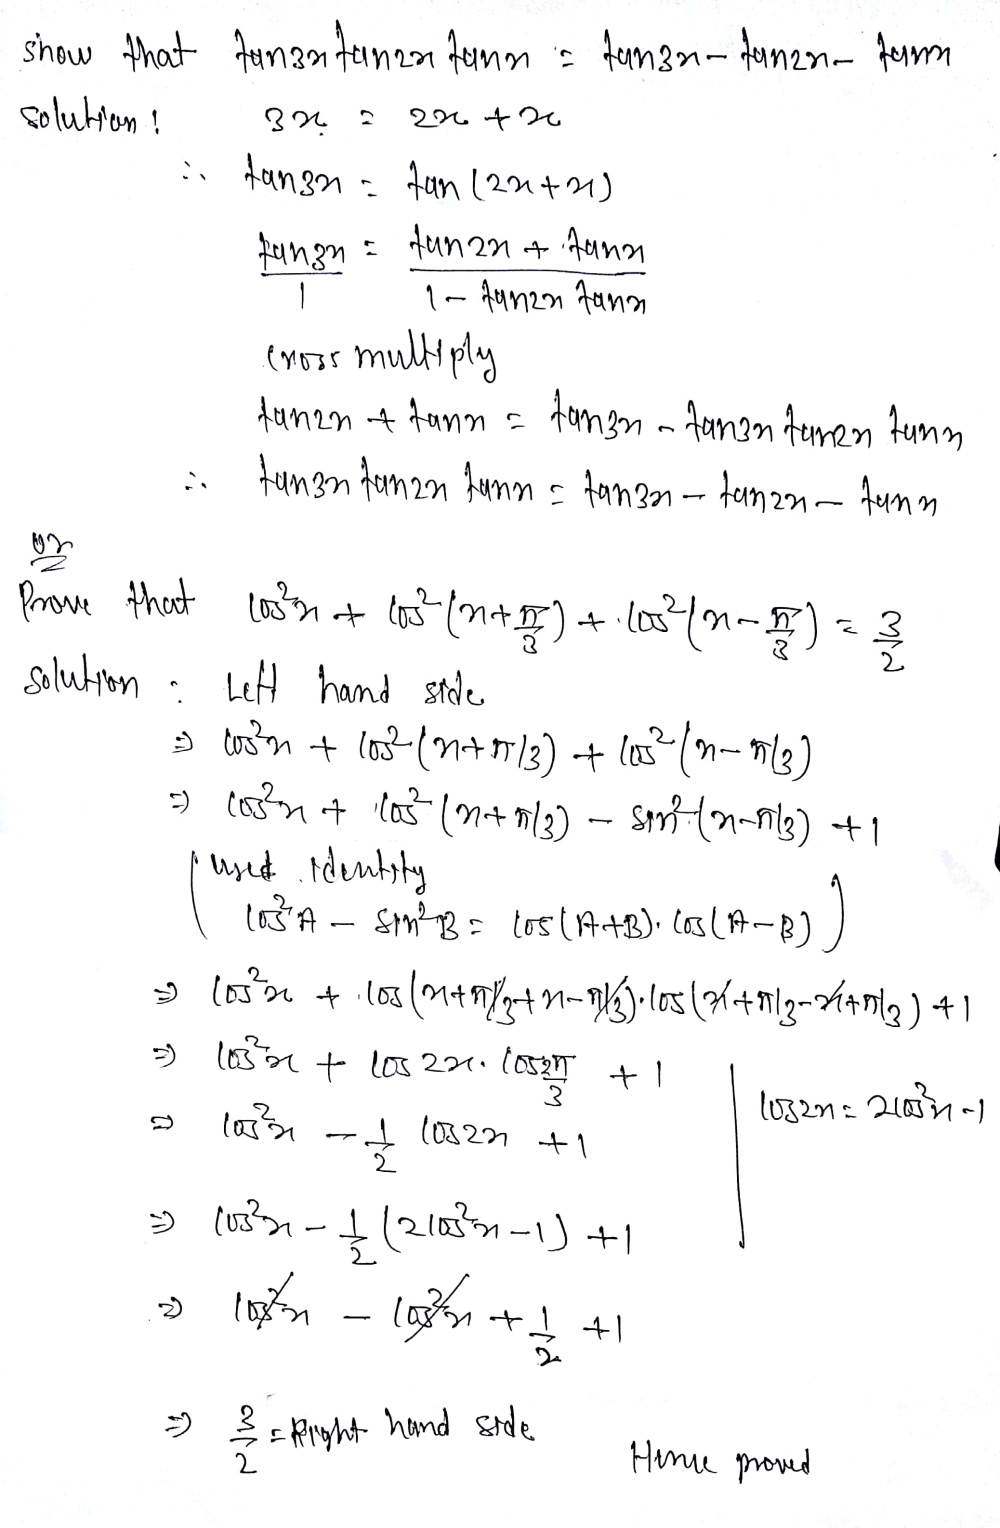 show that tan3x tan2x tanx = tan3x - tan2x - tanx
solution: 3x = 2x + x
∴ tan3x = tan(2x+x)
tan3x/1 = (tan2x + tanx)/(1 - tan2x tanx)
cross multiply
tan2x + tanx = tan3x - tan3x tan2x tanx
∴ tan3x tan2x tanx = tan3x - tan2x - tanx
or
Prove that cos²x + cos²(x+π/3) + cos²(x-π/3) = 3/2
solution : Left hand side
⇒ cos²x + cos²(x+π/3) + cos²(x-π/3)
⇒ cos²x + cos²(x+π/3) - sin²(x-π/3) +1
(used identity
cos²A - sin²B = cos(A+B).cos(A-B))
⇒ cos²x + cos(x+π/3+x-π/3).cos(x+π/3-x+π/3) +1
⇒ cos²x + cos2x. cos2π/3 +1
cos2x = 2cos²x-1
⇒ cos²x - 1/2 cos2x +1
⇒ cos²x - 1/2 (2cos²x-1) +1
⇒ cos²x - cos²x + 1/2 +1
⇒ 3/2 = Right hand side
Hence proved